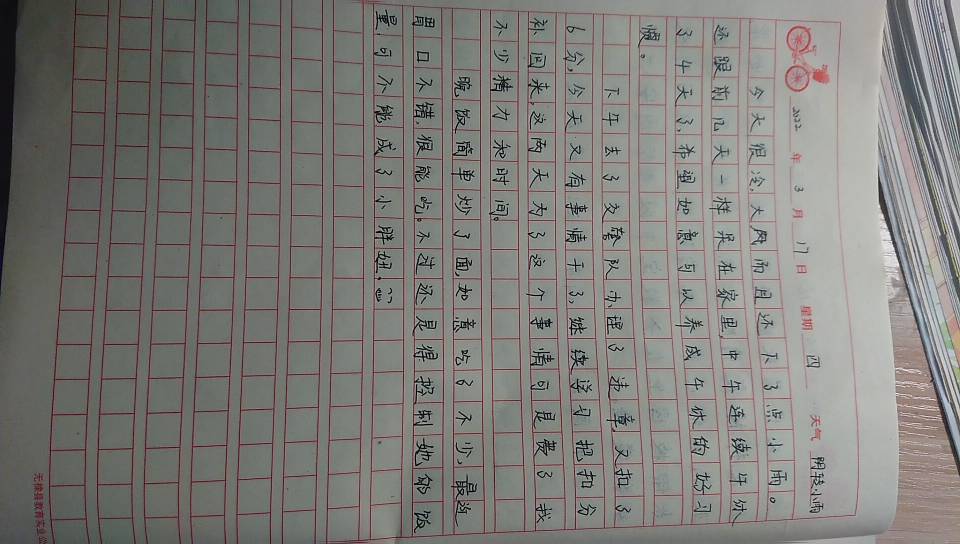 2022年3月17日 星期四 天气 阴转小雨
今天很冷,大风而且还下了点小雨。
还跟前几天一样呆在家里,中午连续午休
了午天了,希望如意可以养成午休的好习
惯。
下午去了交警队办理了违章,又扣了
6分,今天又有事情干了,继续学习把扣分
补回来,这两天为了这个事情可是费了我
不少精力和时间。
晚饭简单炒了面,如意吃了不少,最近
胃口不错,狠能吃。不过还是得控制她的饭
量,可不能成了小胖妞。
无棣县教育实业